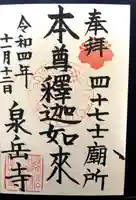 奉拜
四十七士廟所
本尊釋迦如來
令和四年
十一月十二日
泉岳寺